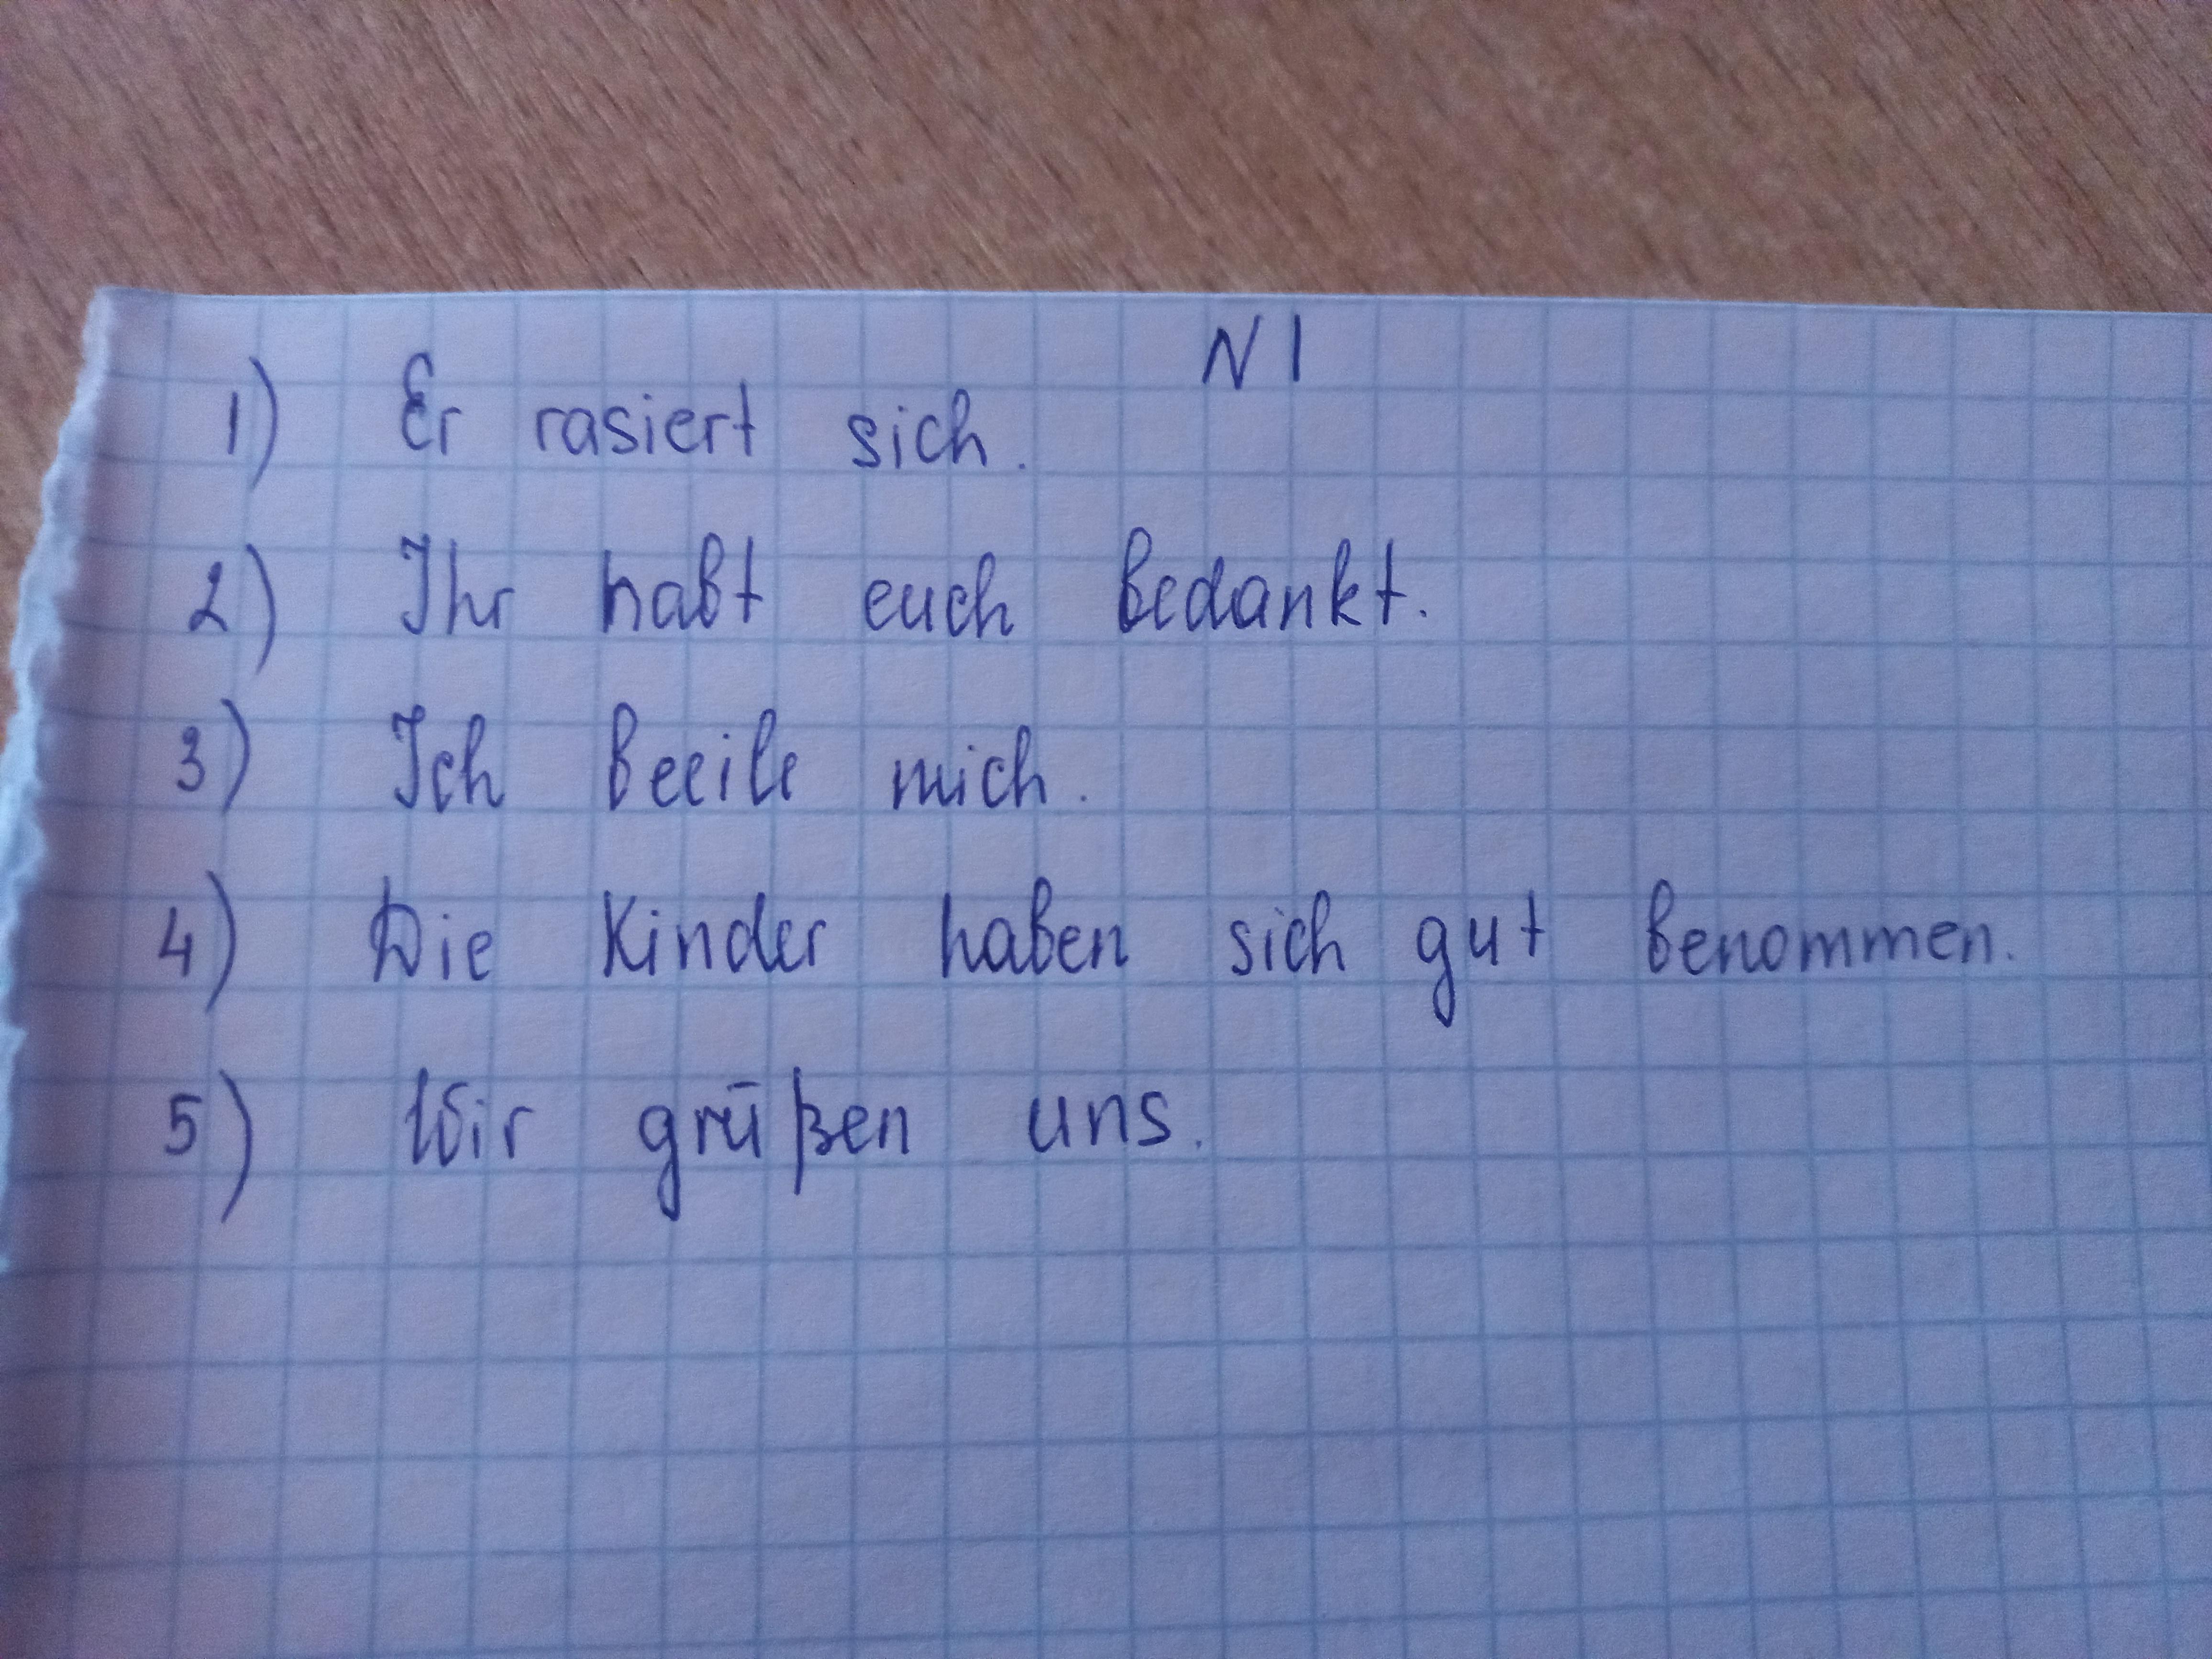 N 1
1) Er rasiert sich.
2) Ihr habt euch bedankt.
3) Ich beeile mich.
4) Die Kinder haben sich gut benommen.
5) Wir grüßen uns.